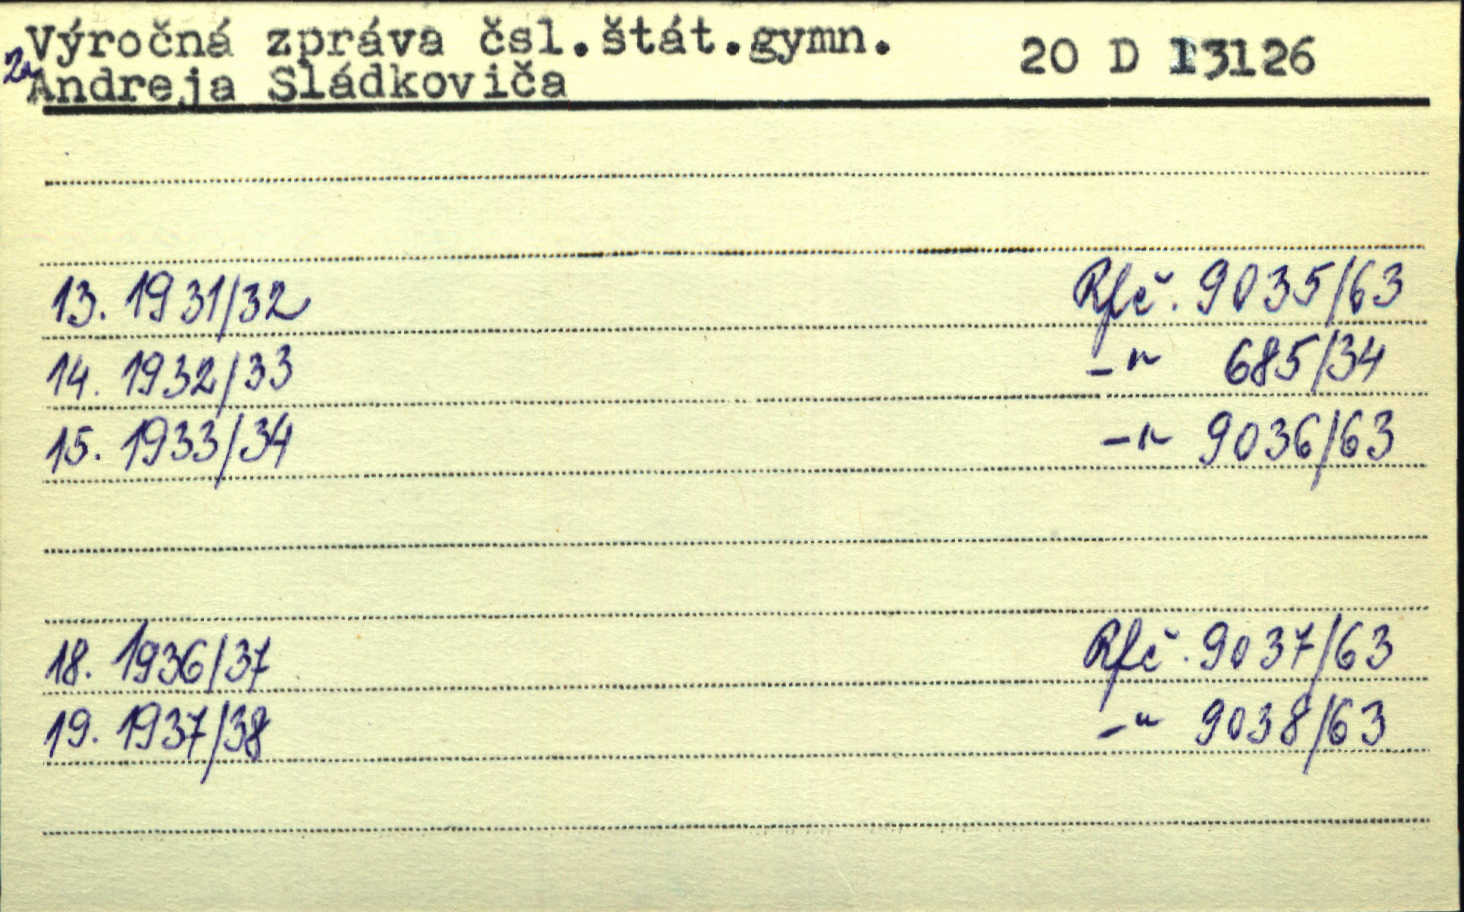 Výročná zpráva čsl.štát.gymn. 20 D 13126
Andreja Sládkoviča
13. 1931/32 Rfč. 9035/63
14. 1932/33 -"- 685/34
15. 1933/34 -"- 9036/63
18. 1936/37 Rfč. 9037/63
19. 1937/38 -"- 9038/63